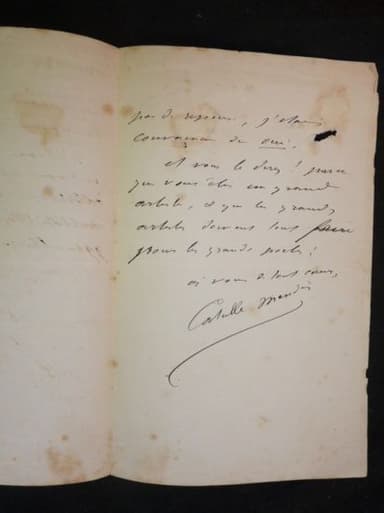 pas de réponse, j'étais
convaincu du oui.
et vous le direz ! parce
que vous êtes un grand
artiste, & que les grands
artistes doivent tout faire
pour les grands poètes !
à vous de tout cœur,
Catulle Mendès